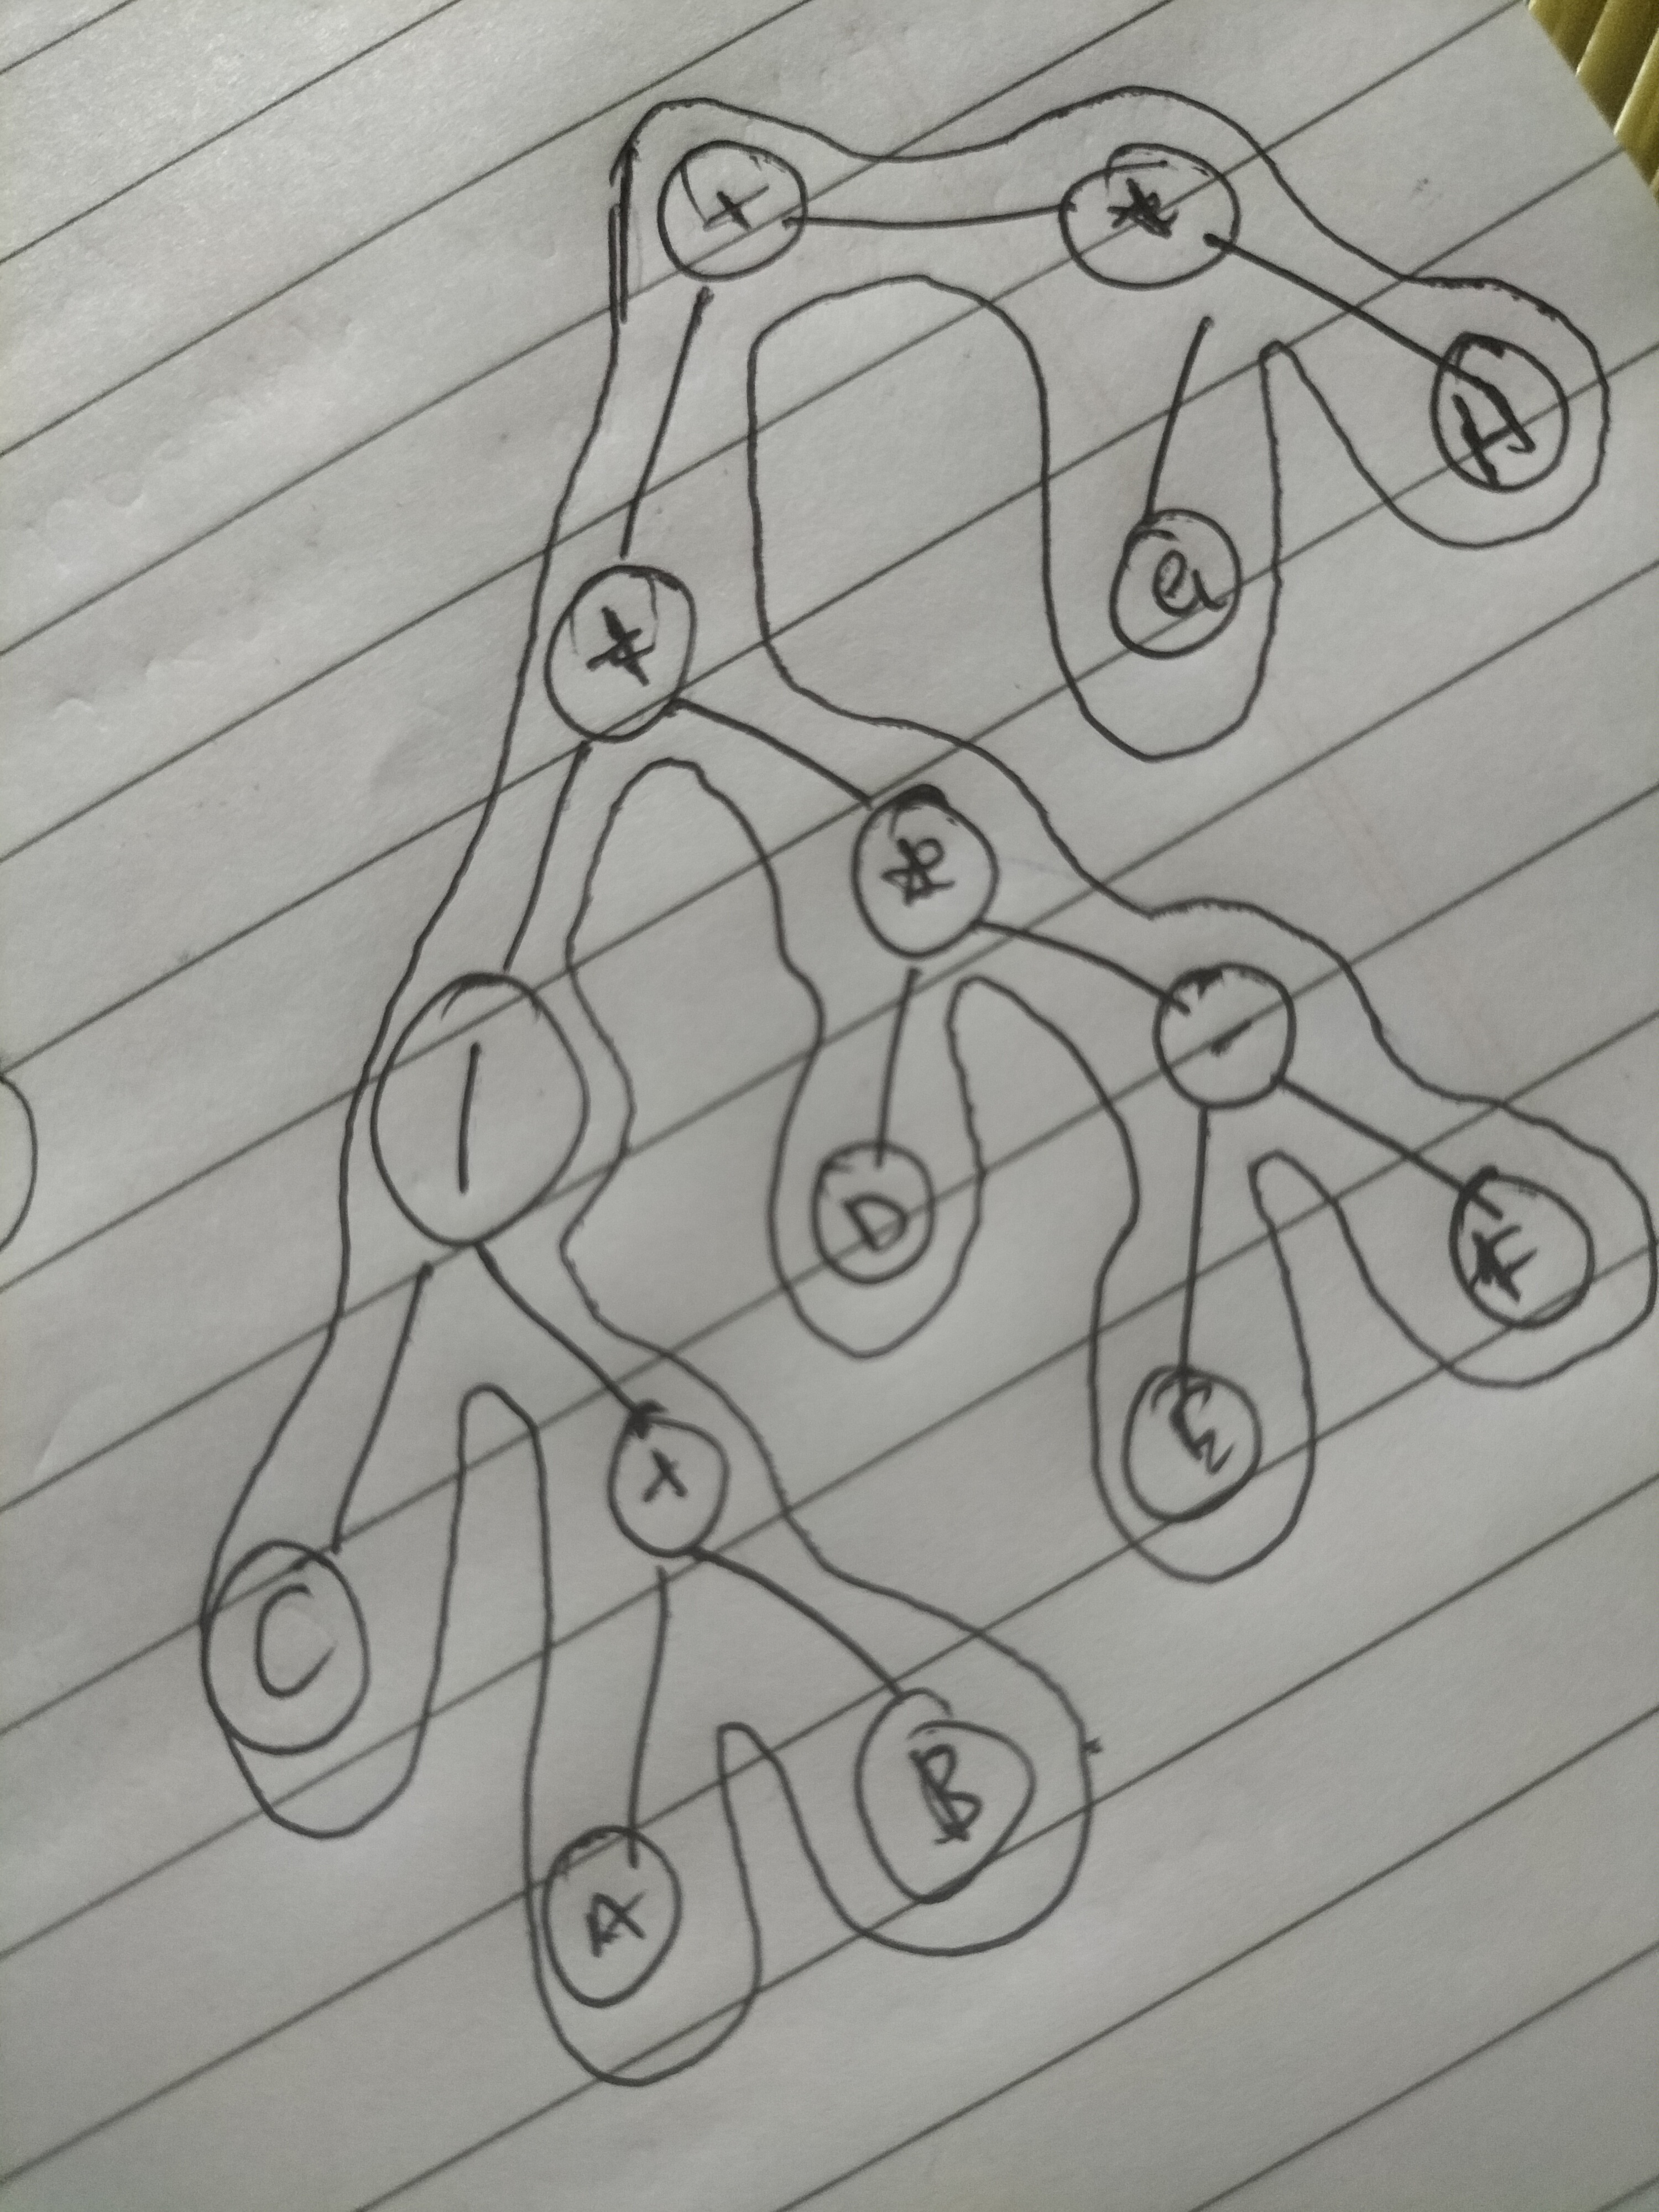 +
*
H
G
*
D
-
/
F
E
C
+
B
A